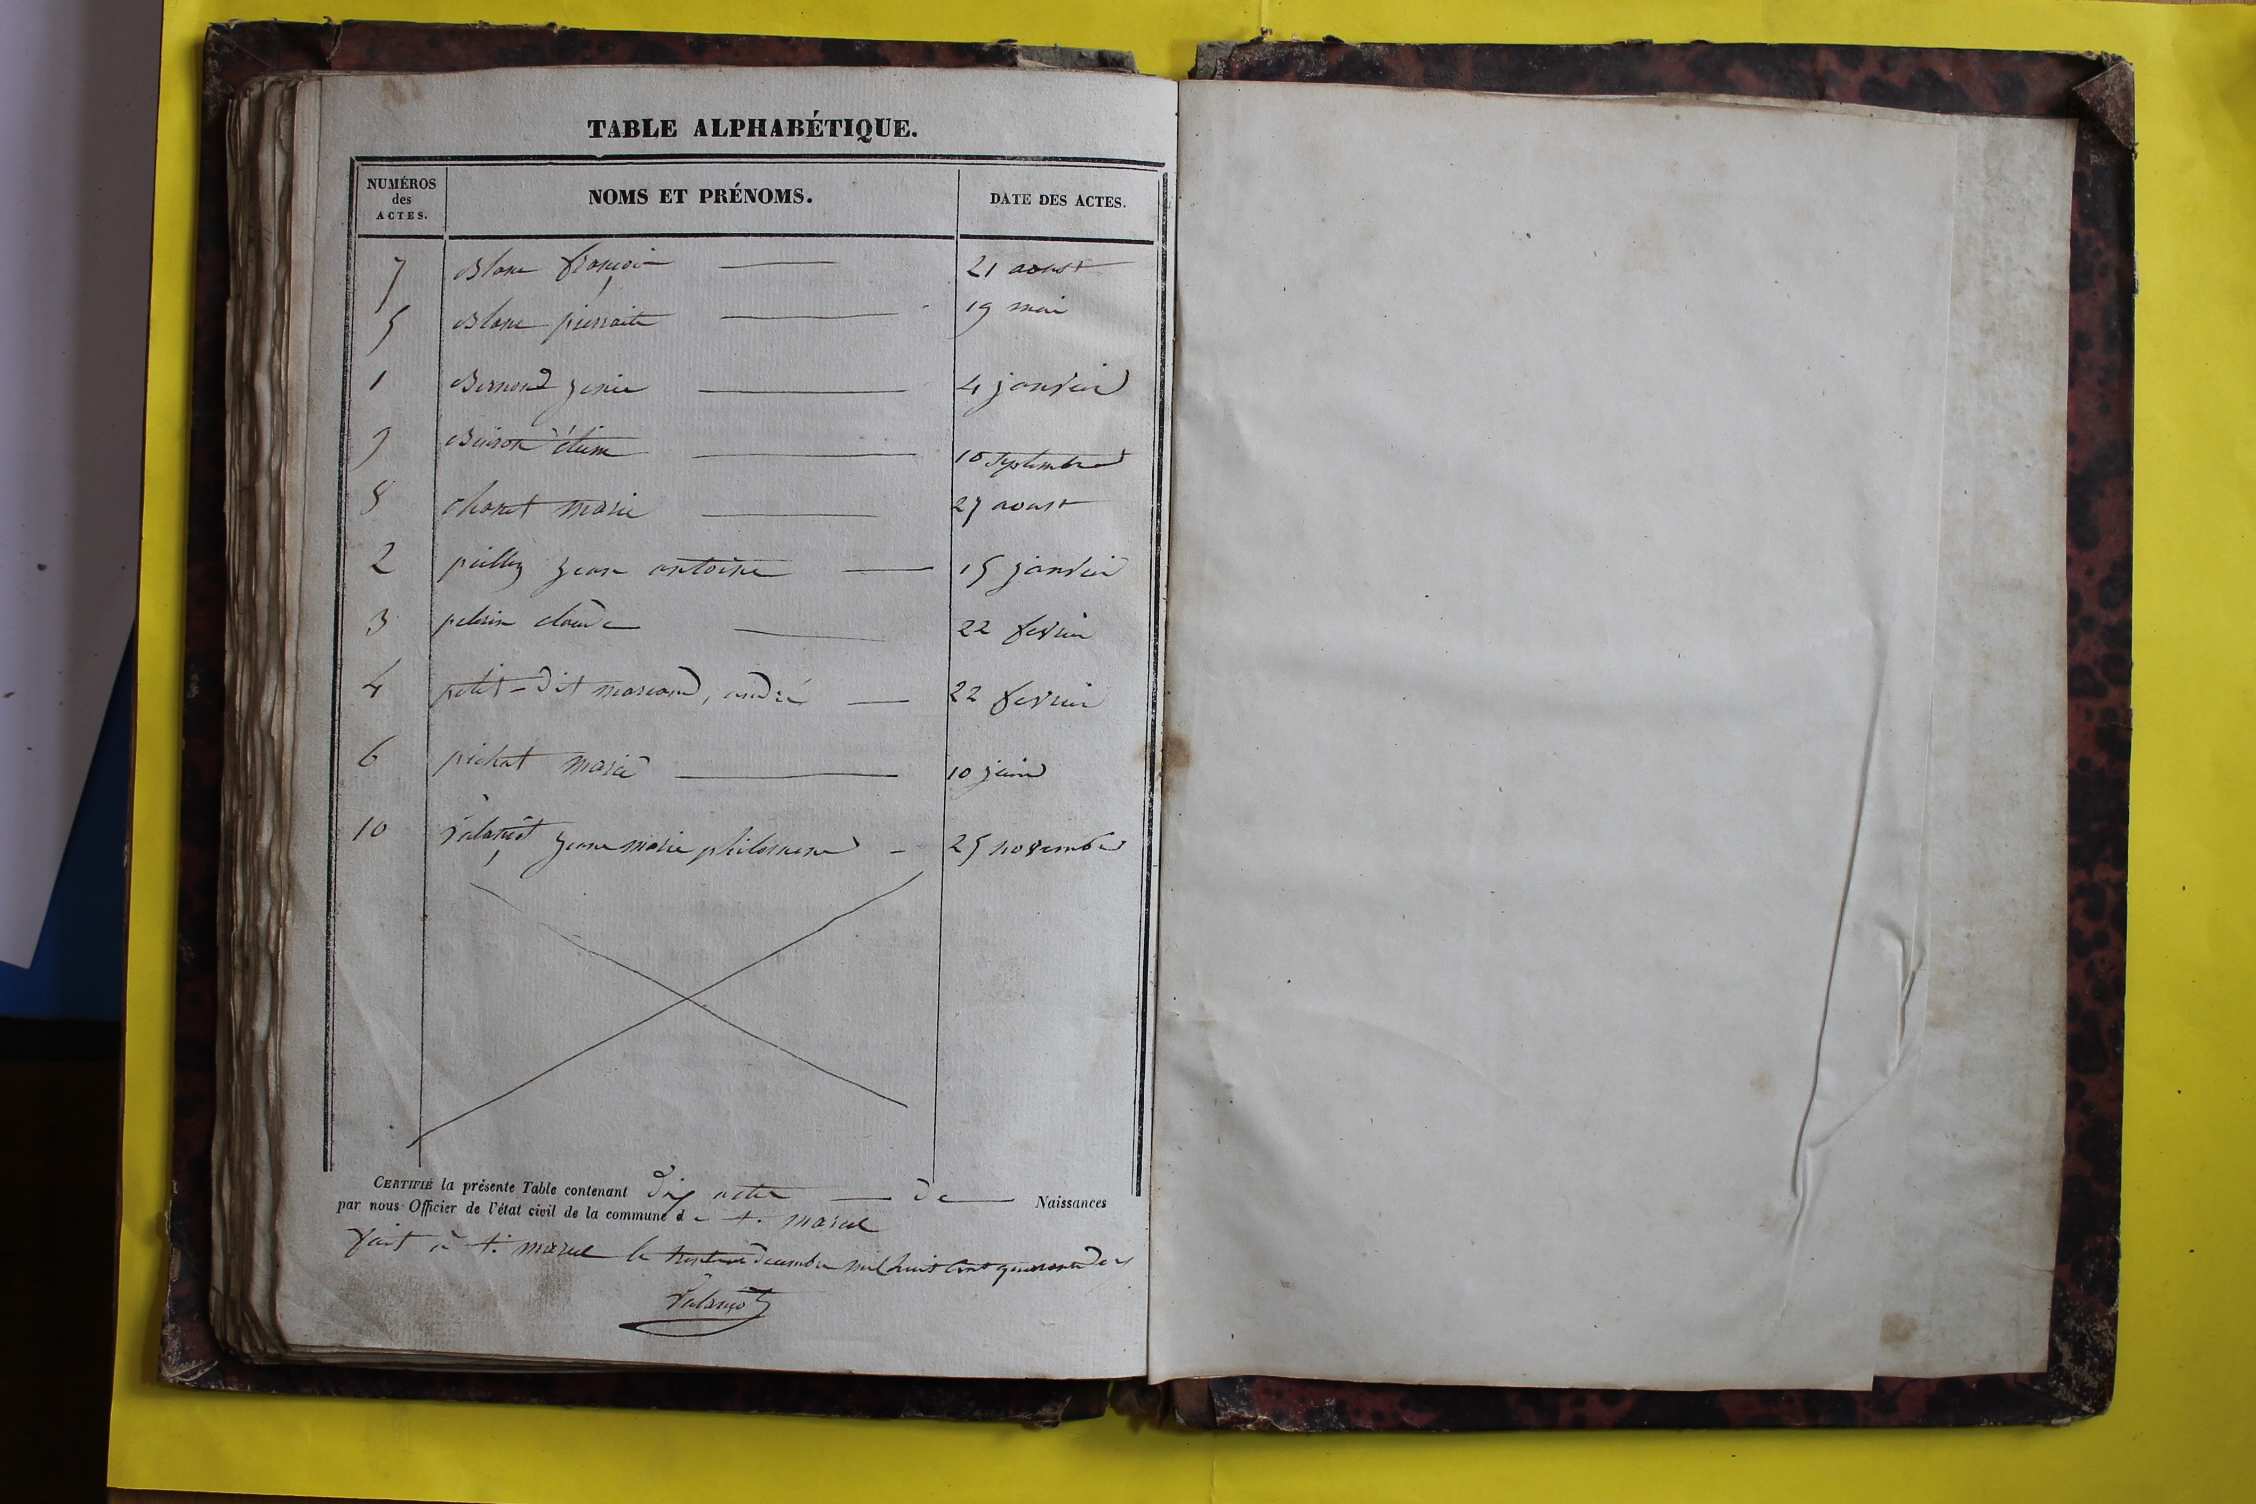 TABLE ALPHABÉTIQUE.
NUMÉROS
des
ACTES.
NOMS ET PRÉNOMS.
DATE DES ACTES.
7 Blanc françois 21 aoust
5 Blanc pierraite 19 mai
1 Bernond 4 janvier
9 Buisson étiene 10 septembre
8 marie 27 aoust
2 jean antoine 15 janvier
3 pelissin claude 22 fevrier
4 petit-dit marcand, andré 22 fevrier
6 pichat marie 10 juin
10 Valançot jeane marie philomene 25 novembre
CERTIFIÉ la présente Table contenant dix actes de Naissances
par nous Officier de l'état civil de la commune de st. marcel
fait à st. marcel le decembre mil huit cent quarante
Valançot